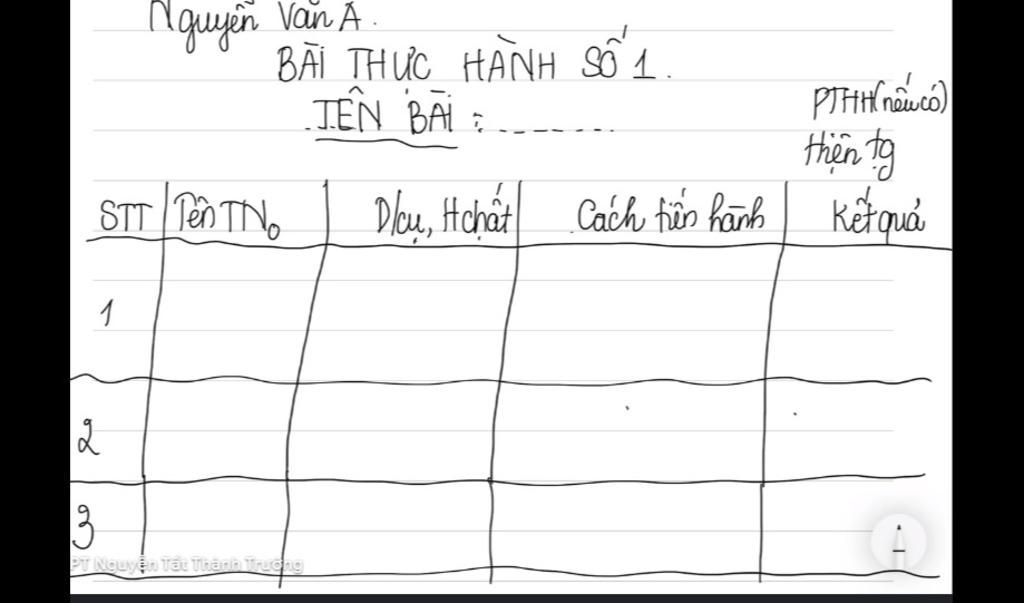 Nguyễn Văn A.
BÀI THỰC HÀNH SỐ 1.
TÊN BÀI : .......
PTHH (nếu có)
Hiện tg
STT Tên TNo D/cụ, Hchất Cách tiến hành Kết quả
1
2
3
PT Nguyễn Tất Thành Trường